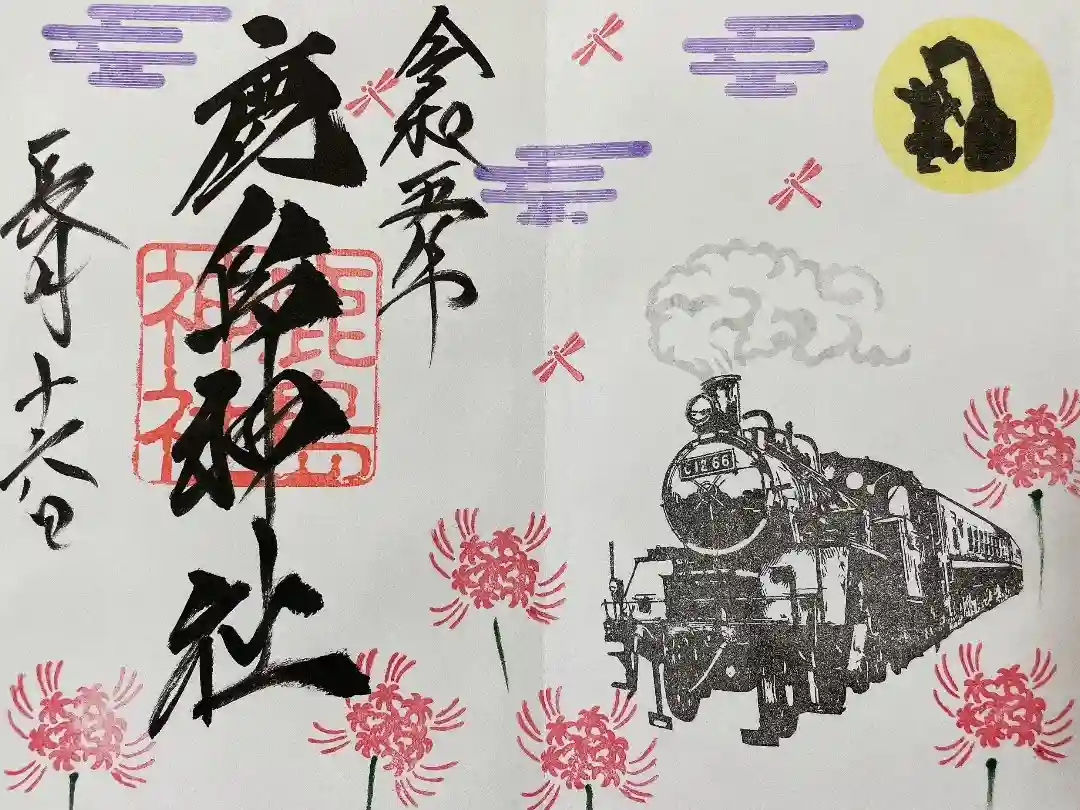 令和五年
鹿島神社
鹿島
神社
長月十六日
C1266